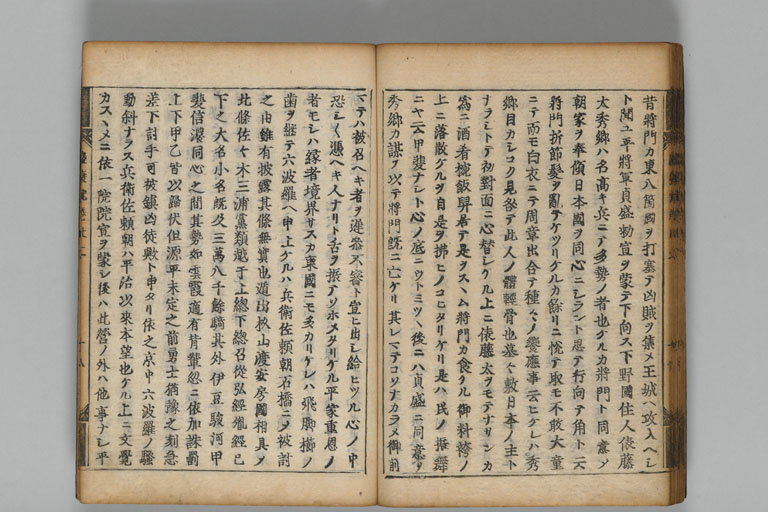 昔將門カ東八箇國ヲ打塞テ凶賊ヲ集メ王城ヘ攻入ヘシ
ト聞ユ平將軍貞盛勅宣ヲ蒙テ下向ス下野國住人俵藤
太秀郷ハ名高キ兵ニテ多勢ノ者也ケルカ將門ト同意メ
朝家ヲ奉傾日本國ヲ同心ニシラント思テ行向テ角ト云
將門折節髮ヲ亂テケツリケルカ餘リニ悦テ取モ不敢大童
ニテ而モ白衣ニテ周章出合テ種々ノ饗應事云ヒケレハ秀
郷目カシコク見咎テ此人ノ體輕骨也墓々敷日本ノ主ト
ナラシトテ初對面ニ心替シケル上ニ俵藤太ヲモテナサンカ
爲ニ酒肴椀飯舁居テ是ヲスヽム將門カ食クル御料袴ノ
上ニ落散ケルヲ自是ヲ拂ヒノコヒタリケリ是ハ民ノ振舞
ニヤ云甲斐ナシト心ノ底ニウトミツヽ後ニハ貞盛ニ同意ヲ
秀郷カ謀ヲ以テ將門既ニ亡ケリ其レマテコソナカラメ御前
マテハ被召ヘキ者ヲ遲参不審ト宣ヒ出シ給ヒツル心ノ中
恐シク憑ヘキ人ナリト舌ヲ振テソホメタリケル平家重恩ノ
者モシハ縁者境界サスカ東國ニモ多カリケレハ飛脚櫛ノ
齒ヲ継テ六波羅ヘ申上ケルハ兵衛佐頼朝石橋ニメ被討
之由雖有披露其條無實也遁出杦山渡安房國相具メ
北條佐々木三浦黨類越于上総下総召從弘經胤經已
下之大名小名既及三萬八千餘騎其外伊豆駿河甲
斐信濃同心之間其勢如雲霞適有背輩忽ニ依加誅罰
上下甲乙皆以歸伏但源平未定之前勇士猶豫之刻急
差下討手可被鎮凶徒歟ト申タリ依之京中六波羅ノ騒
動斜ナラス兵衛佐頼朝ハ平治以來本望也ケル上ニ文覺
カスヽメニ依一院院宣ヲ蒙シ後ハ此營ノ外ハ他事ナシ平